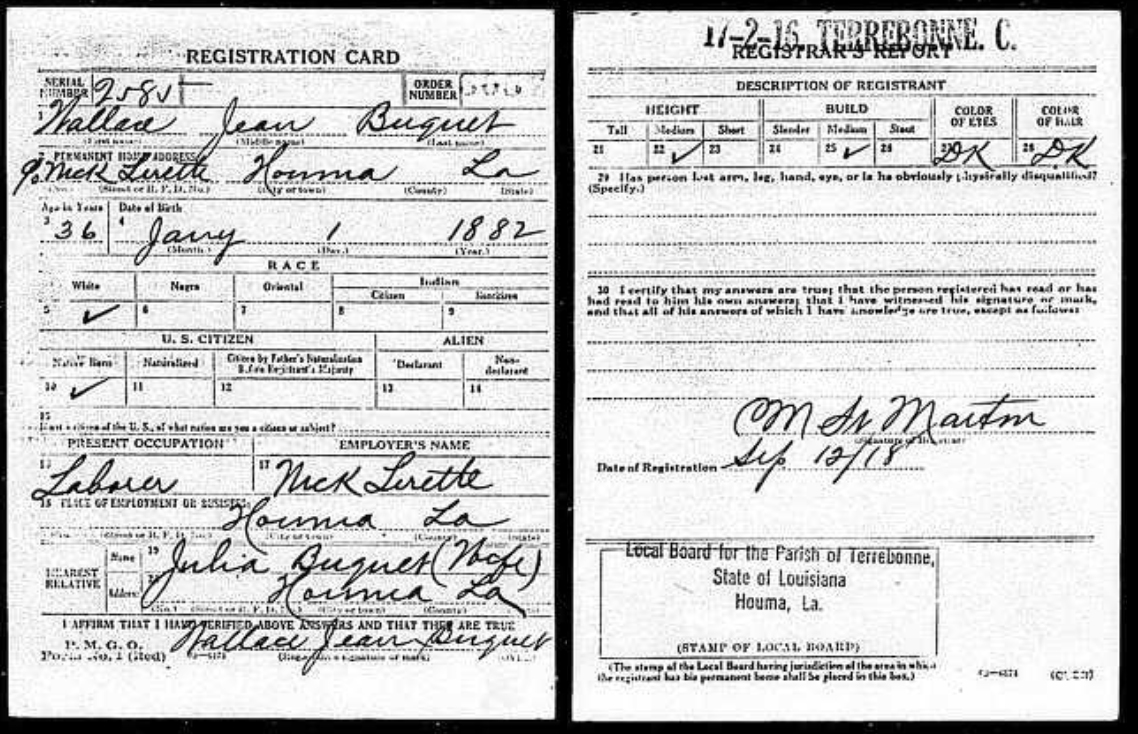 REGISTRATION CARD
SERIAL NUMBER
ORDER NUMBER
1 Wallace Jean Buquet
(First name) (Middle name) (Last name)
PERMANENT HOME ADDRESS
c/o Nick Lirette Houma La
(No.) (Street or R. F. D. No.) (City or town) (County) (State)
Age in Years Date of Birth
3 36 4 Jany 1 1882
(Month.) (Day.) (Year.)
RACE
White Negro Oriental Indian
Citizen Noncitizen
5 ✓ 6 7 8 9
U. S. CITIZEN ALIEN
Native Born Naturalized Citizen by Father's Naturalization Before Registrant's Majority Declarant Non-declarant
10 ✓ 11 12 13 14
15
If not a citizen of the U. S., of what nation are you a citizen or subject?
PRESENT OCCUPATION EMPLOYER'S NAME
Laborer 17 Nick Lirette
18 PLACE OF EMPLOYMENT OR BUSINESS:
Houma La
(No.) (Street or R. F. D. No.) (City or town) (County) (State)
NEAREST RELATIVE
Name 19 Julia Buquet (Wife)
Address Houma La
(No.) (Street or R. F. D. No.) (City or town) (County)
I AFFIRM THAT I HAVE VERIFIED ABOVE ANSWERS AND THAT THEY ARE TRUE
P. M. G. O.
Form No. 1 (Red) Wallace Jean Buquet
(Registrant's signature or mark) (OVER)
17-2-16 TERREBONNE. C.
REGISTRAR'S REPORT
DESCRIPTION OF REGISTRANT
HEIGHT BUILD COLOR OF EYES COLOR OF HAIR
Tall Medium Short Slender Medium Stout
21 22 ✓ 23 24 25 ✓ 26 27 DK 28 DK
29 Has person lost arm, leg, hand, eye, or is he obviously physically disqualified?
(Specify.)
30 I certify that my answers are true; that the person registered has read or has
had read to him his own answers; that I have witnessed his signature or mark,
and that all of his answers of which I have knowledge are true, except as follows:
Date of Registration Sep 12/18
Local Board for the Parish of Terrebonne,
State of Louisiana
Houma, La.
(STAMP OF LOCAL BOARD)
(The stamp of the Local Board having jurisdiction of the area in which
the registrant has his permanent home shall be placed in this box.)
(OVER)